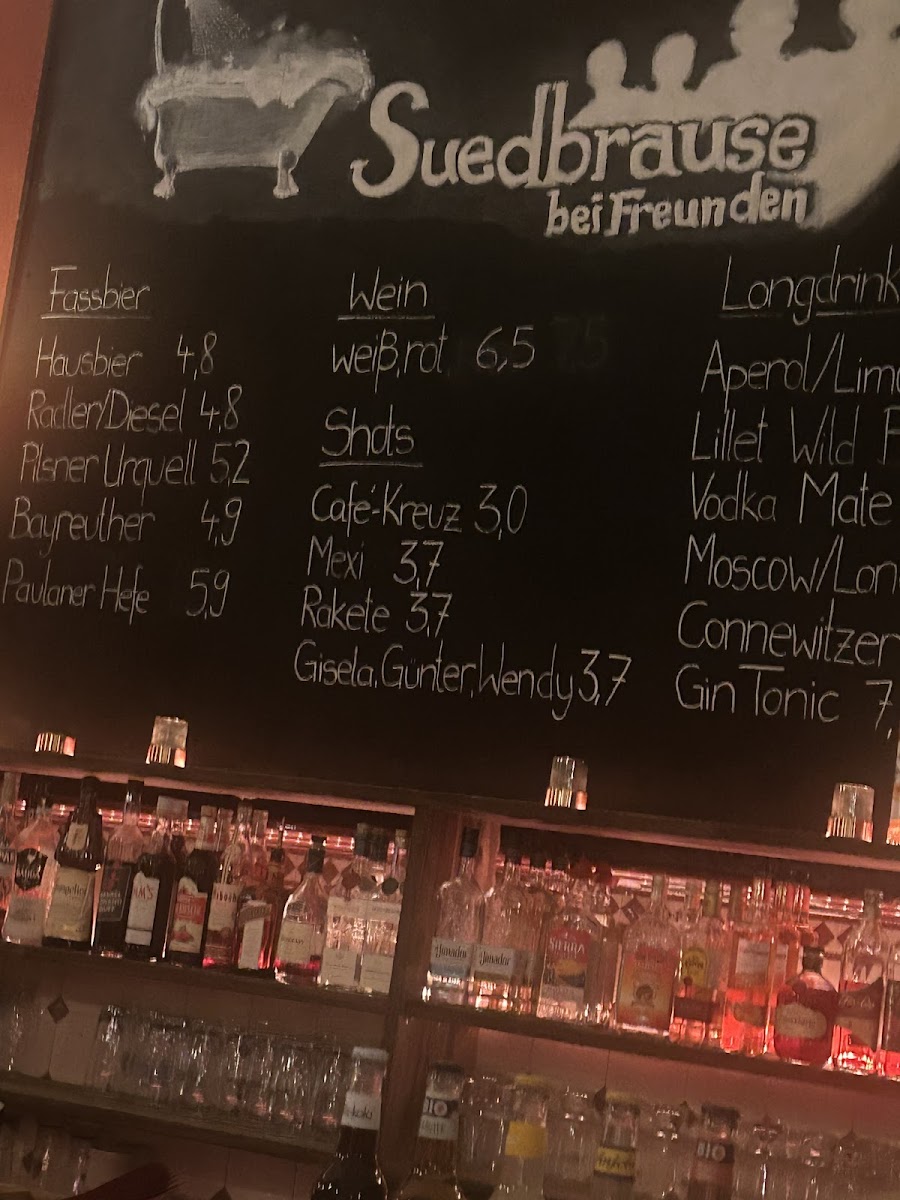 Suedbrause
bei Freunden
Fassbier
Hausbier 4,8
Radler/Diesel 4,8
Pilsner Urquell 5,2
Bayreuther 4,9
Paulaner Hefe 5,9
Wein
weiß, rot 6,5
Shots
Café-Kreuz 3,0
Mexi 3,7
Rakete 3,7
Gisela, Günter, Wendy 3,7
Longdrink
Aperol/Lim
Lillet Wild
Vodka Mate
Moscow/Lon
Connewitzer
Gin Tonic 7,
Janador
Janador
SIERRA
BIO
BIO